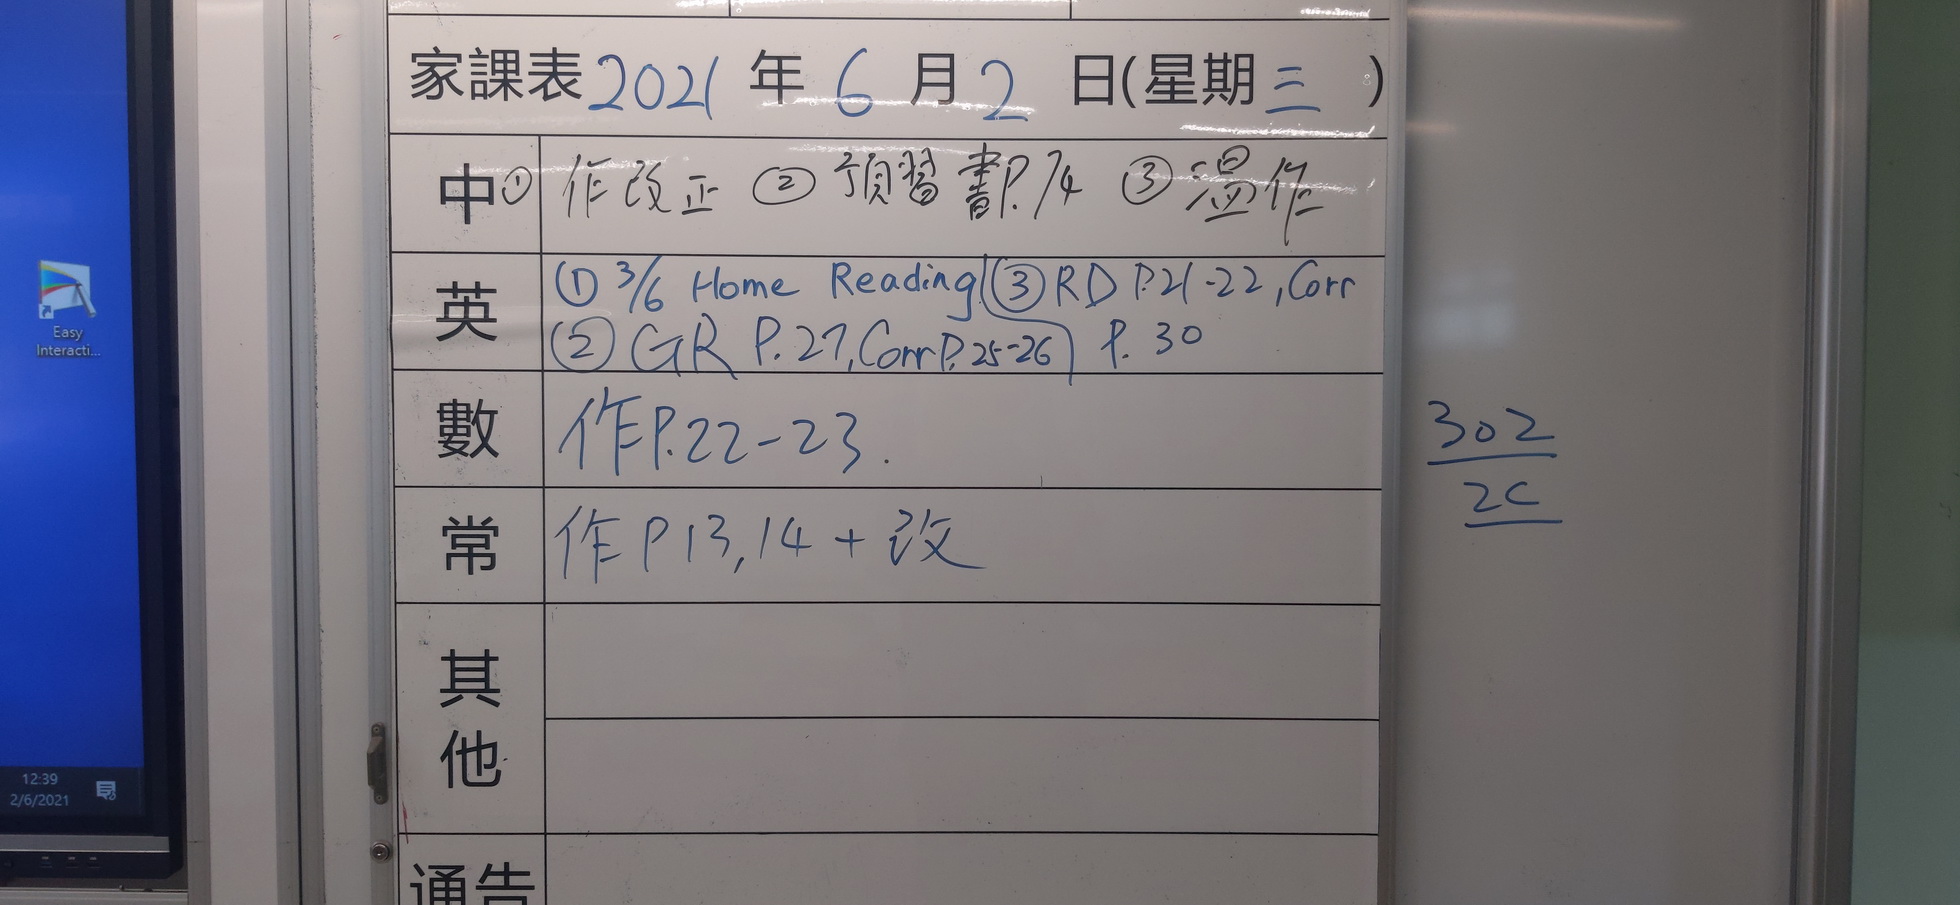 家課表 2021 年 6 月 2 日(星期 三 )
中 ① 作改正 ② 預習書P.74 ③ 溫作
英 ① 3/6 Home Reading ③ RD P.21-22, Corr P. 30
② GR P. 27, Corr P. 25-26
數 作P.22-23.
常 作P 13, 14 + 改
其他
通告
302
2C
Easy
Interacti...
12:39
2/6/2021